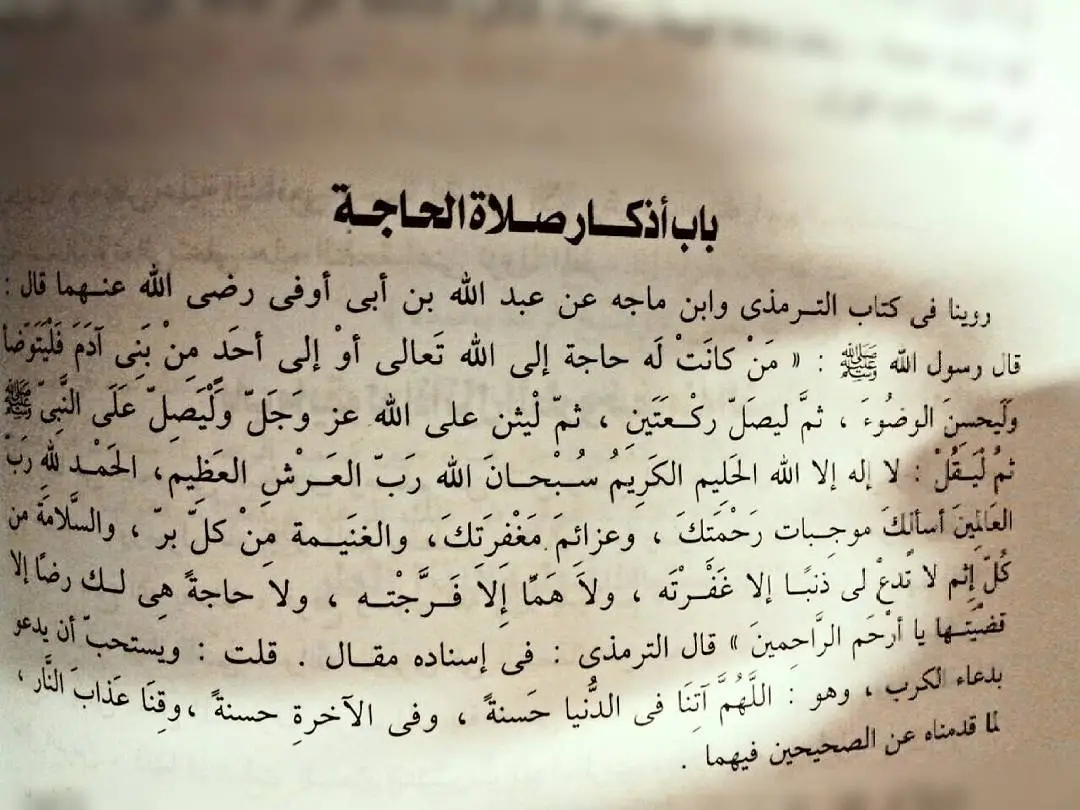 باب أذكـار صـلاة الحـاجـة
روينا فى كتاب التـرمذى وابن ماجه عن عبد الله بن أبى أوفى رضى الله عنـهما قال :
قال رسول الله ﷺ : « مَنْ كانَتْ لَه حاجة إلى الله تَعالى أوْ إلى أحَد مِنْ بَنِى آدَمَ فَلْيَتَوَضأ
وَلَيحسِنَ الوضُوءَ ، ثمَّ ليصَلّ ركْـعَتَينِ ، ثمّ لْيثن على الله عز وَجَلّ وَلْيَصلّ عَلَى النَّبِىّ ﷺ
ثمُ لْيَـقُلْ : لا إله إلا الله الحَلِيم الكَرِيمُ سُـبْحـانَ الله رَبّ العَـرْشِ العَظِيم، الحَمْـد للهِ رَبّ
العَالمِينَ أسألكَ موجبات رَحْمَتكَ ، وعزائمَ مَغْفرَتِكَ، والغنَيـمة مِنْ كلّ برّ ، والسَّلامَةَ من
كُلّ إثم لا تَدعْ لى ذنبًـا إلا غَفْـرْتَه ، ولاَ هَمّا إلا فَـرَّجْتـه ، ولا حاجةً هِى لـك رضًا إلا
قضَيْتَـها يا أرْحَم الرَّاحِمينَ » قال الترمذى : فى إسناده مقـال . قلت : ويستحبّ أن يدعو
بدعاء الكرب ، وهو : اللَّهُمَّ آتنَا فى الدُّنيا حَسنةً ، وفى الآخرةِ حسنةً ،وقِنَا عَذابَ النَّار ،
لما قدمناه عن الصحيحين فيهما .